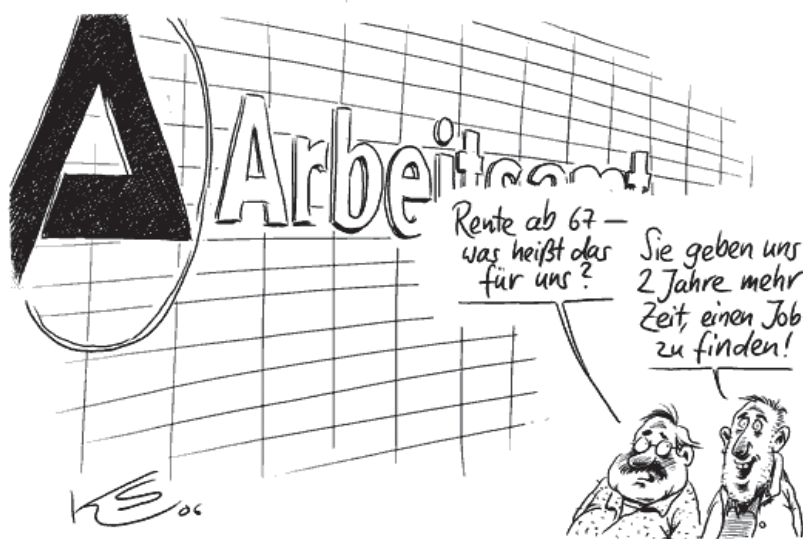 Arbeitsamt
Rente ab 67 –
was heißt das
für uns?
Sie geben uns
2 Jahre mehr
Zeit, einen Job
zu finden!
06